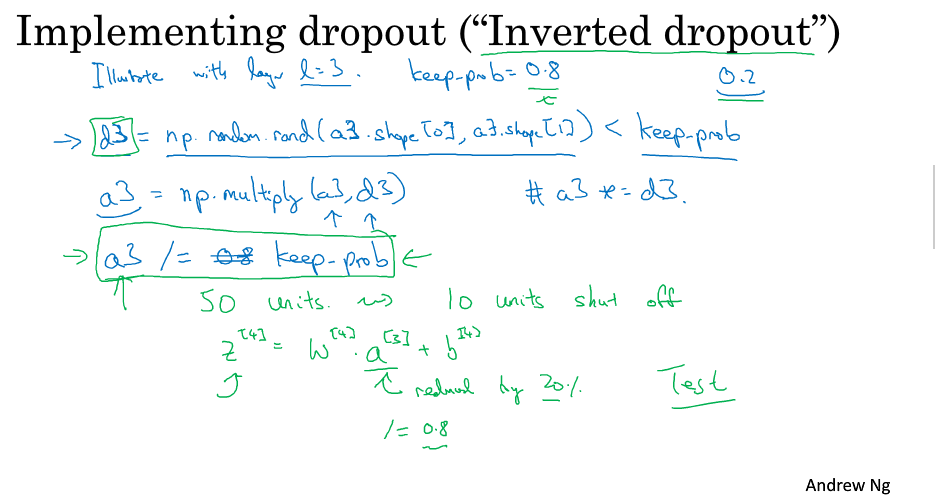 Implementing dropout (“Inverted dropout”)
Illustrate with layer l=3. keep-prob= 0.8 0.2
→ d3 = np.random.rand(a3.shape[0], a3.shape[1]) < keep-prob
a3 = np.multiply(a3, d3) # a3 *= d3.
→ a3 /= 0.8 keep-prob ←
50 units. ⇝ 10 units shut off
z[4] = W[4] . a[3] + b[4]
reduced by 20% Test
/= 0.8
Andrew Ng